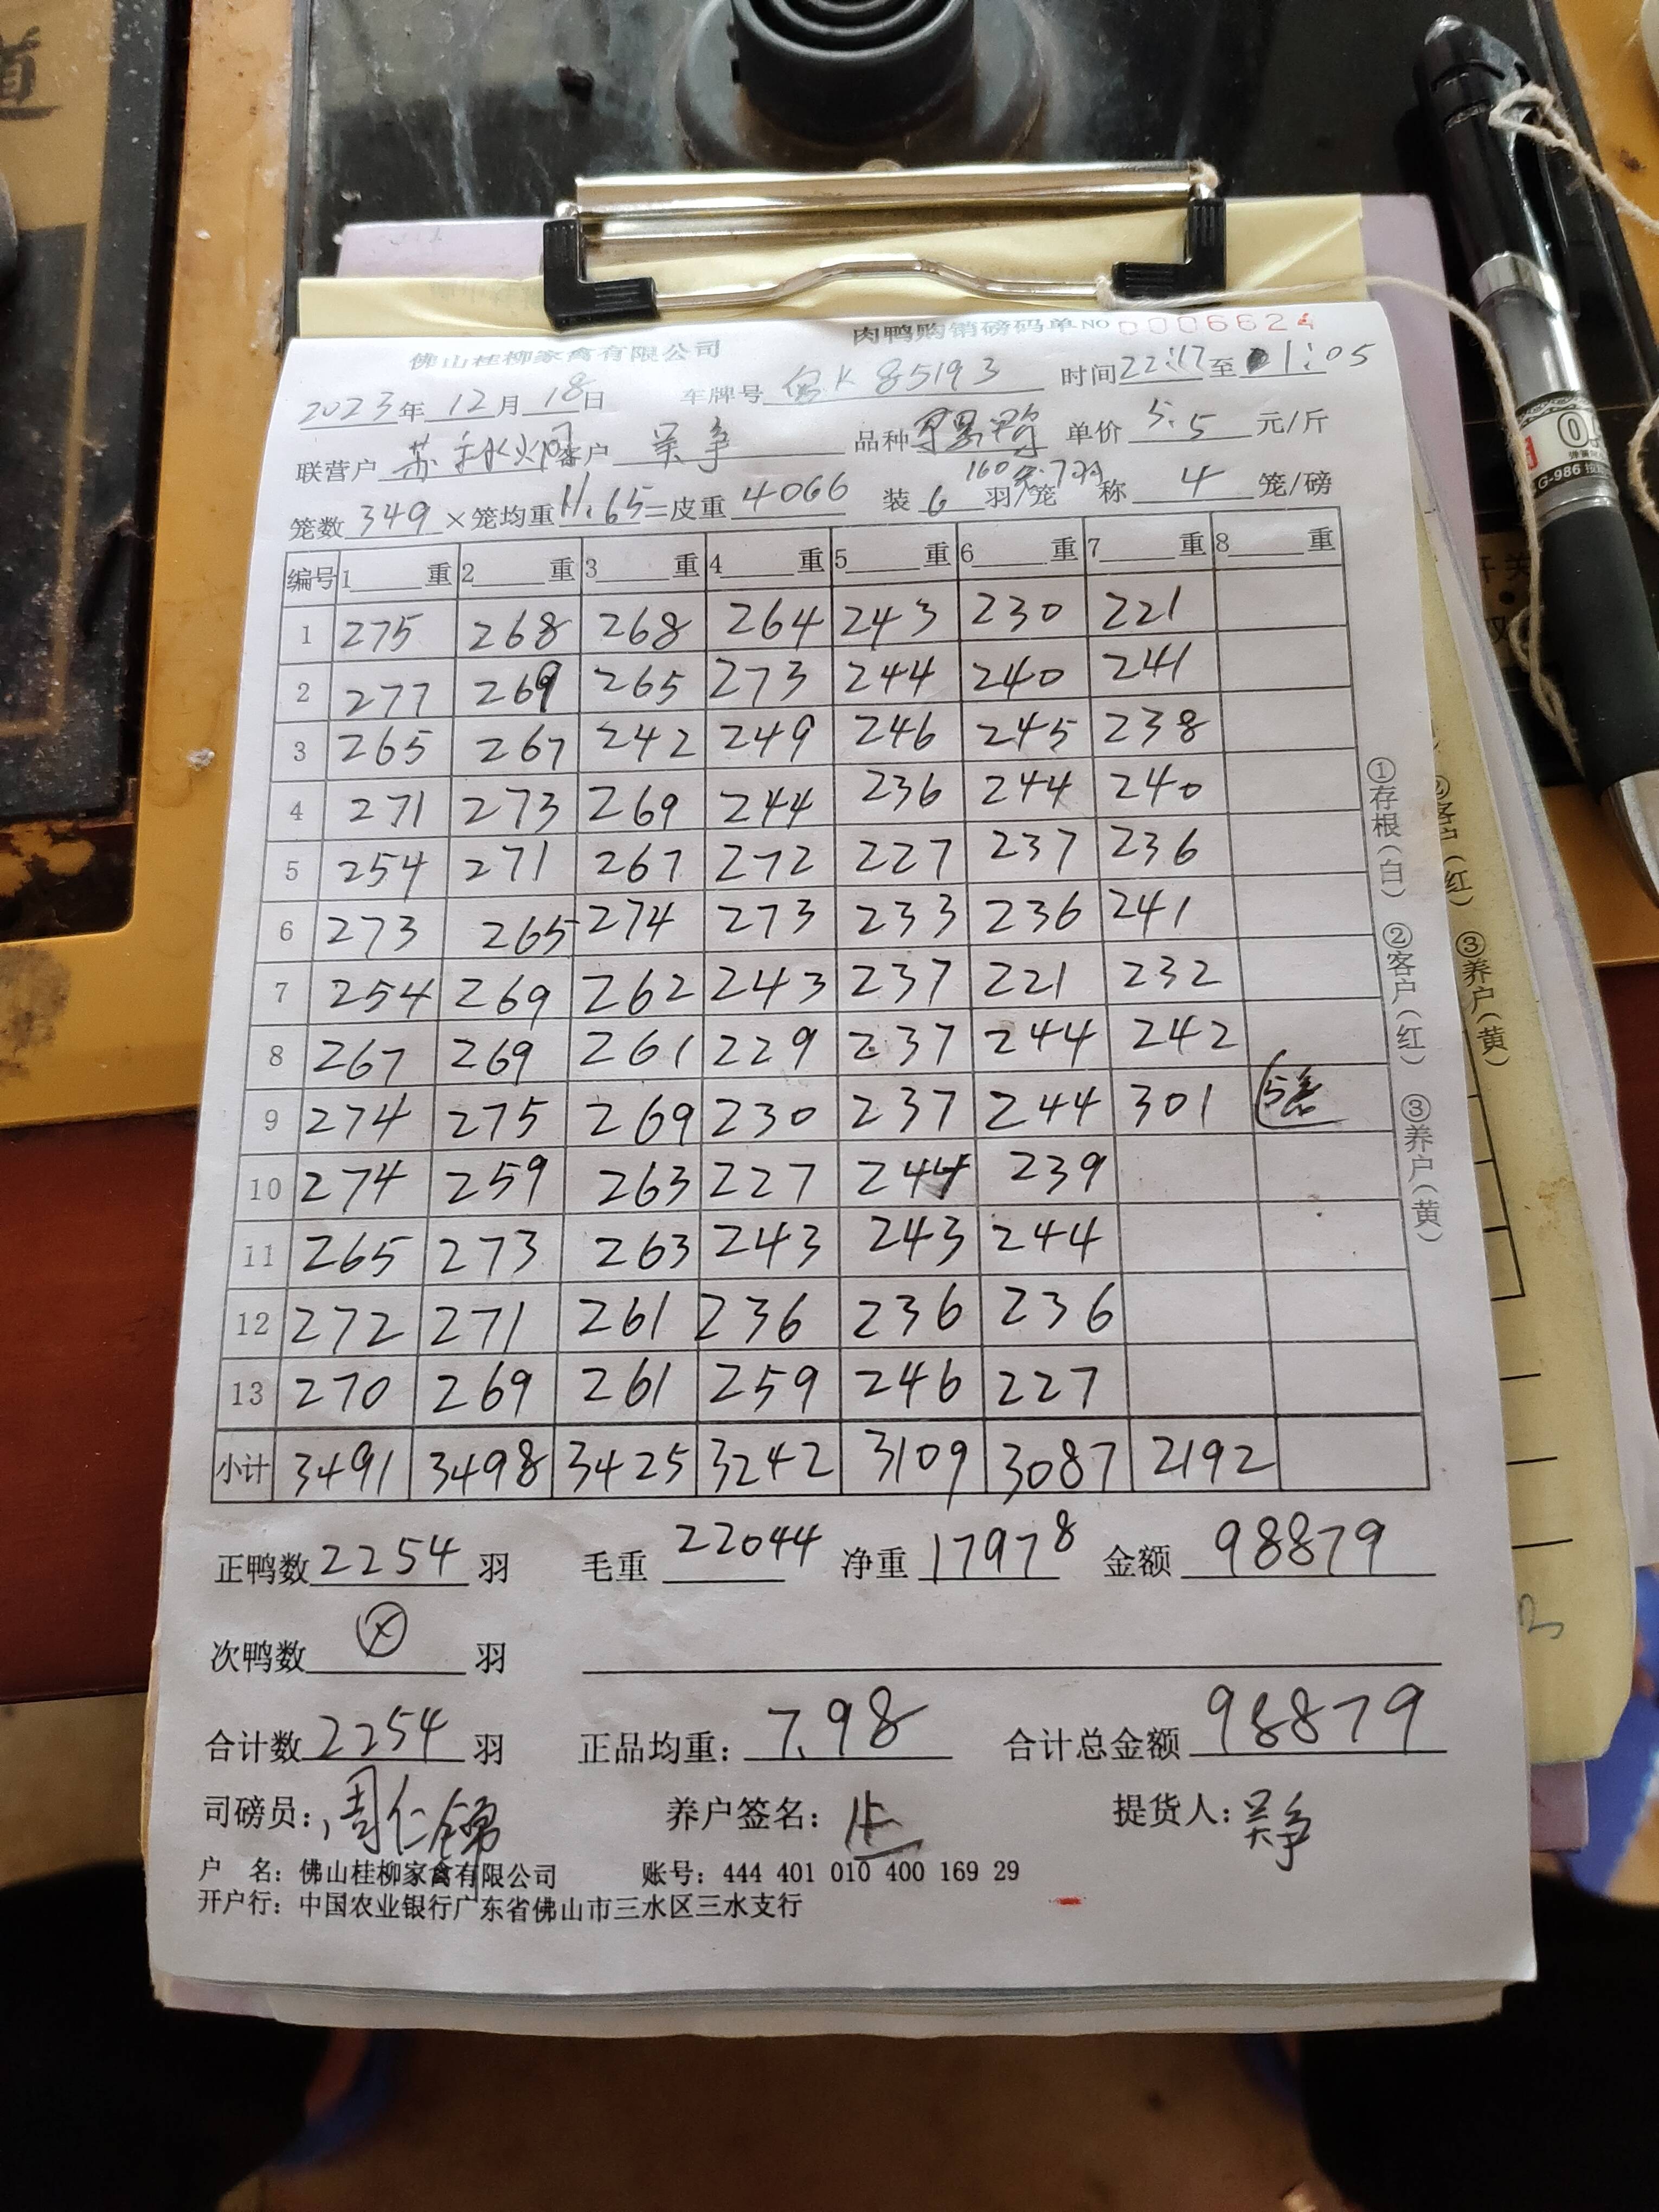 道
佛山桂柳家禽有限公司 肉鸭购销磅码单 NO 0006624
2023年 12月 18日 车牌号 K85193 时间 22:17 至 01:05
联营户 苏 客户 吴争 品种 单价 5.5 元/斤
160 7羽
笼数 349 ×笼均重 11.65 =皮重 4066 装 6 羽/笼 称 4 笼/磅
编号 1 重 2 重 3 重 4 重 5 重 6 重 7 重 8 重
1 275 268 268 264 243 230 221
2 277 269 265 273 244 240 241
3 265 267 242 249 246 245 238
4 271 273 269 244 236 244 240
5 254 271 267 272 227 237 236
6 273 265 274 273 233 236 241
7 254 269 262 243 237 221 232
8 267 269 261 229 237 244 242
9 274 275 269 230 237 244 301 5
10 274 259 263 227 244 239
11 265 273 263 243 243 244
12 272 271 261 236 236 236
13 270 269 261 259 246 227
小计 3491 3498 3425 3242 3109 3087 2192
正鸭数 2254 羽 毛重 22044 净重 17978 金额 98879
次鸭数 羽
合计数 2254 羽 正品均重： 7.98 合计总金额 98879
司磅员： 周仁 养户签名： 提货人： 吴争
户 名： 佛山桂柳家禽有限公司 账号： 444 401 010 400 169 29
开户行： 中国农业银行广东省佛山市三水区三水支行
①存根（白） ②客户（红） ③养户（黄）
客户（红） ③养户（黄）
G-986
开关